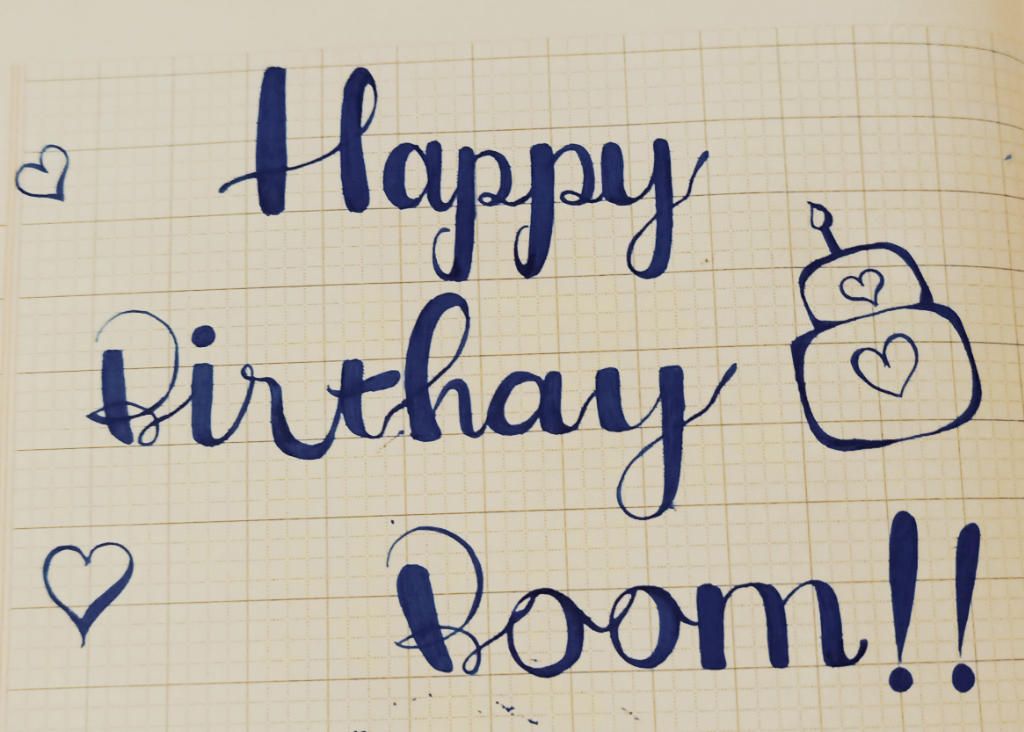 Happy
Birthay
Boom!!